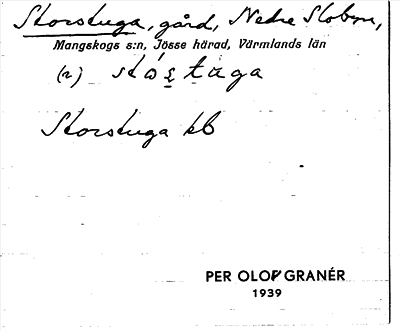 Storstuga, gård, Nedre Slobyn,
Mangskogs s:n, Jösse härad, Värmlands län
(2) stó̤s̤tuga
Storstuga kb
PER OLOF GRANÉR
1939